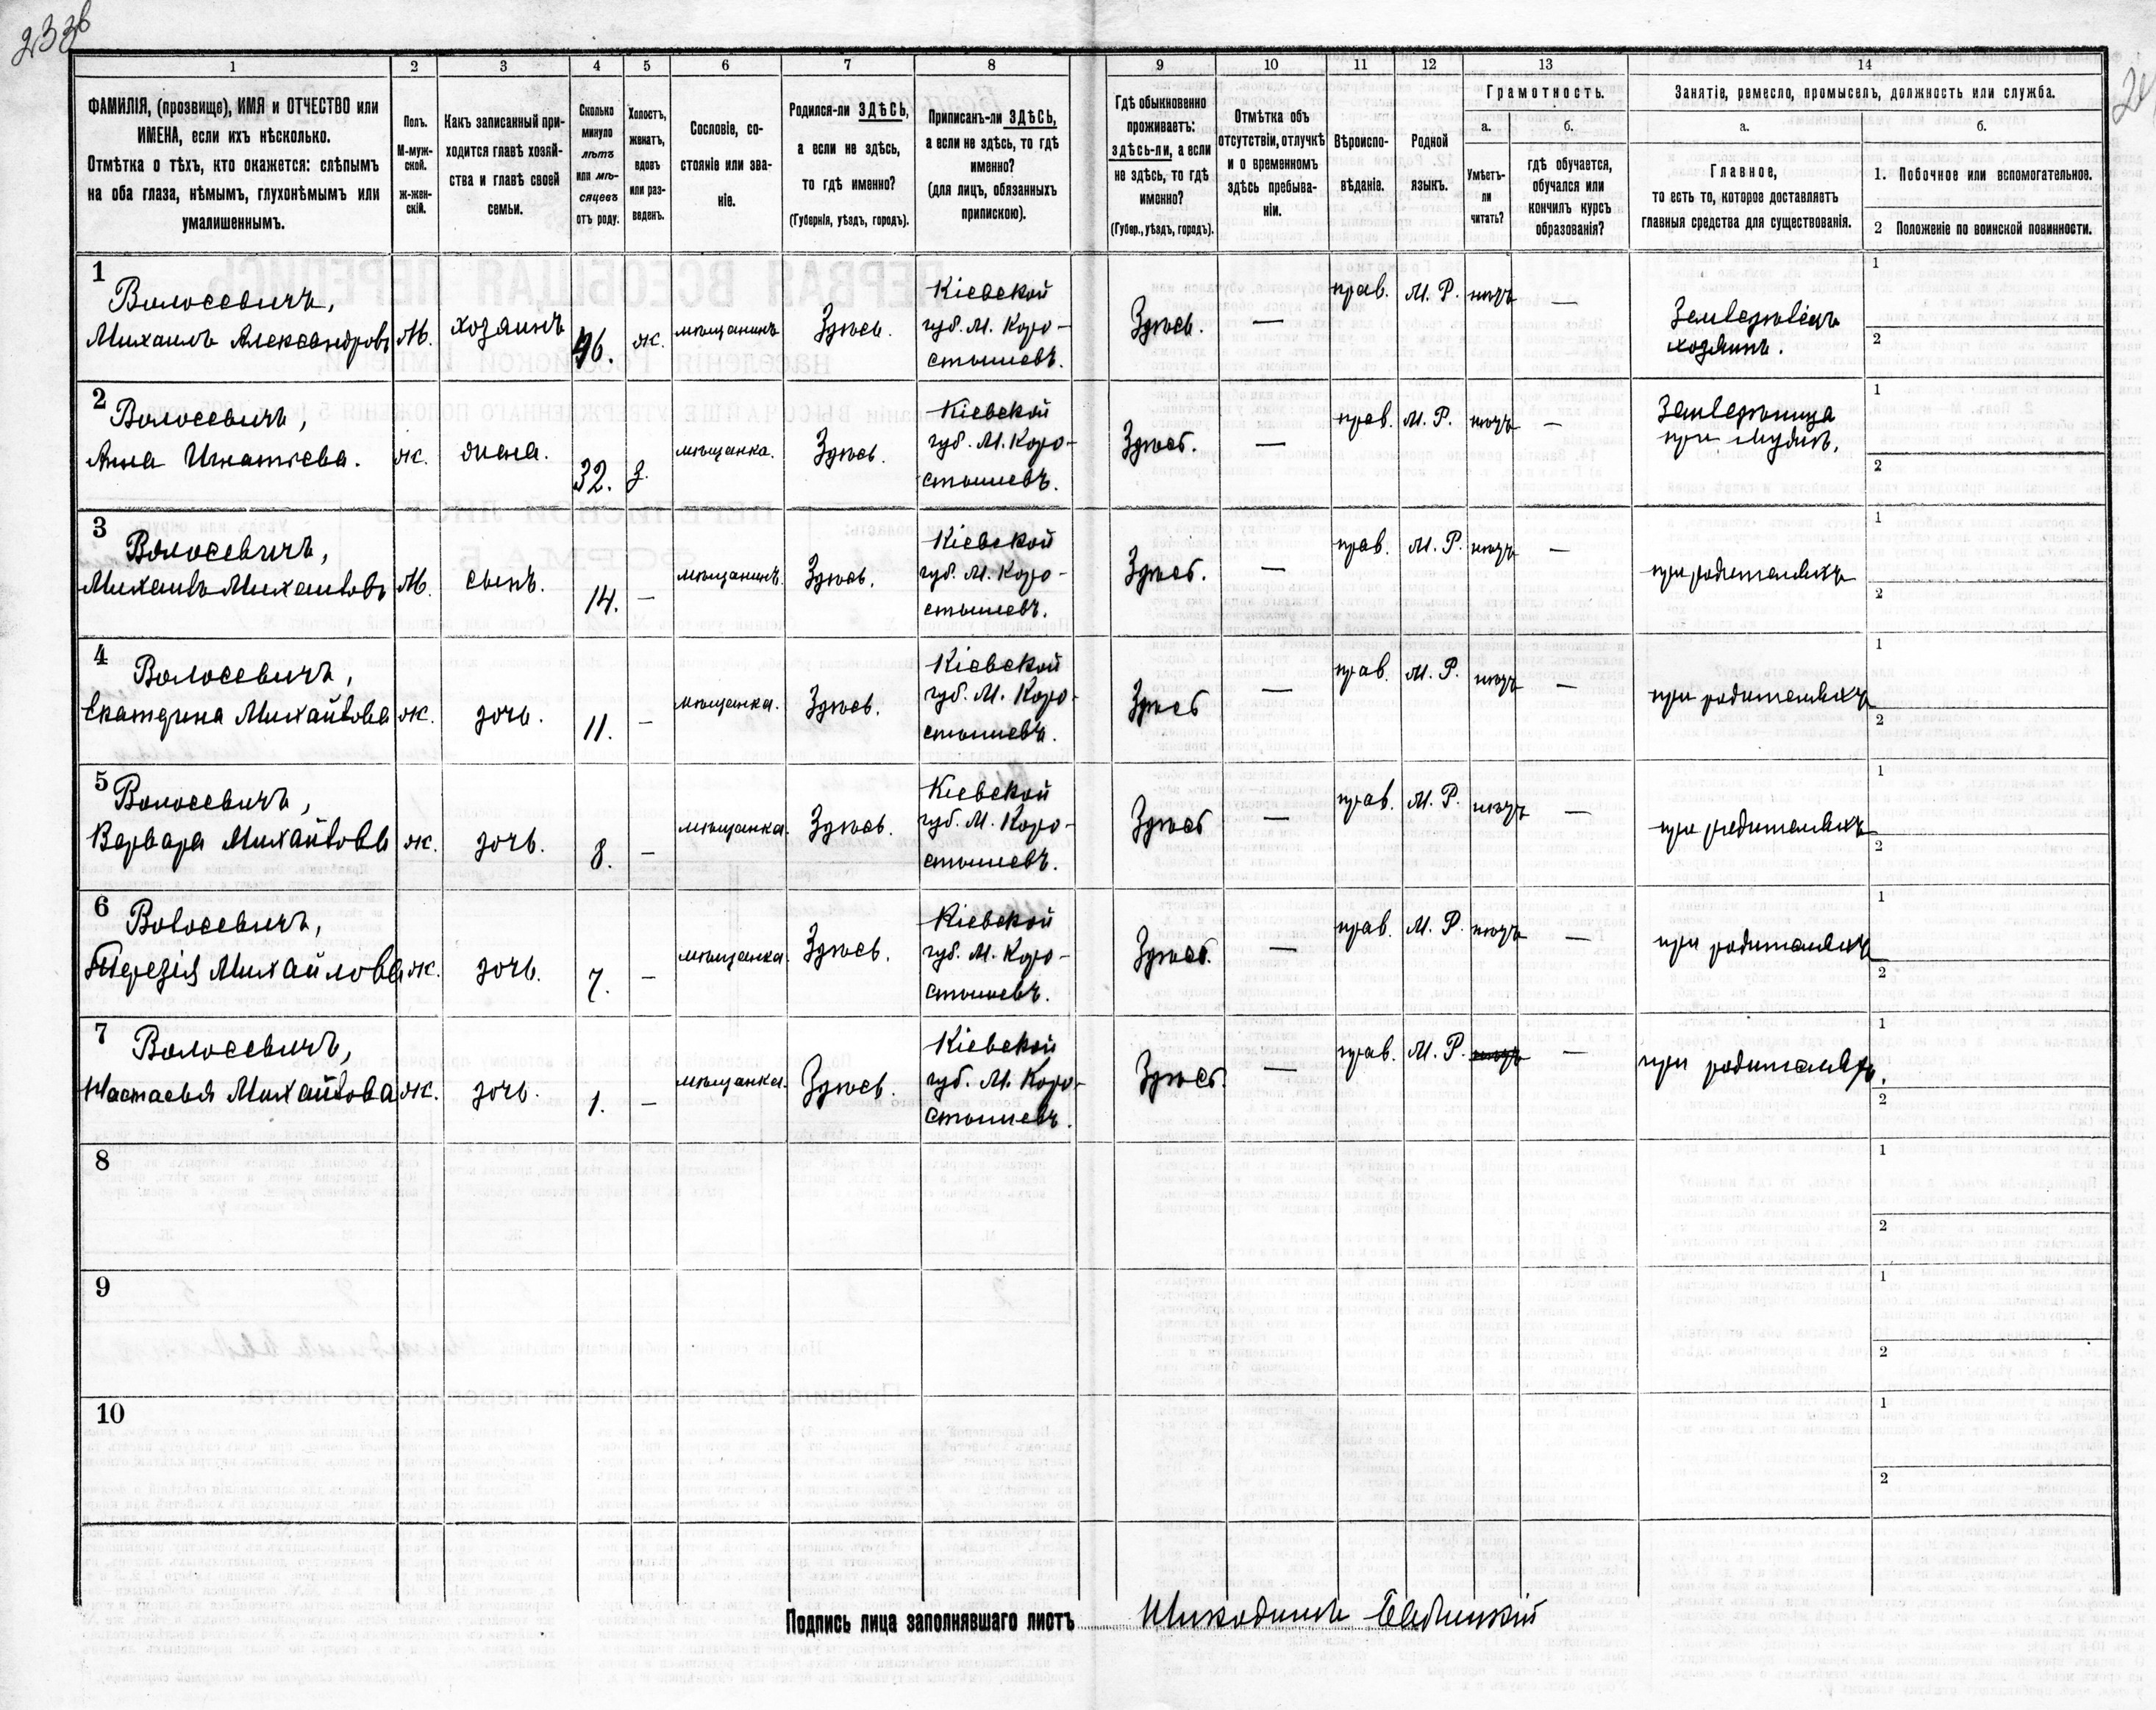 233б
1
2
3
4
5
6
7
8
9
10
11
12
13
14
ФАМИЛІЯ, (прозвище), ИМЯ и ОТЧЕСТВО или
ИМЕНА, если ихъ нѣсколько.
Отмѣтка о тѣхъ, кто окажется: слѣпымъ
на оба глаза, нѣмымъ, глухонѣмымъ или
умалишеннымъ.
Полъ.
М-муж-
ской.
ж-жен-
скій.
Какъ записанный при-
ходится главѣ хозяй-
ства и главѣ своей
семьи.
Сколько
минуло
лѣтъ
или мѣ-
сяцевъ
отъ роду.
Холостъ,
женатъ,
вдовъ
или раз-
веденъ.
Сословіе, со-
стояніе или зва-
ніе.
Родился-ли ЗДѢСЬ,
а если не здѣсь,
то гдѣ именно?
(Губернія, уѣздъ, городъ).
Приписанъ-ли ЗДѢСЬ,
а если не здѣсь, то гдѣ
именно?
(для лицъ, обязанныхъ
припискою).
Гдѣ обыкновенно
проживаетъ:
здѣсь-ли, а если
не здѣсь, то гдѣ
именно?
(Губер., уѣздъ, городъ).
Отмѣтка объ
отсутствіи, отлучкѣ
и о временномъ
здѣсь пребыва-
ніи.
Вѣроиспо-
вѣданіе.
Родной
языкъ.
Грамотность.
а.
Умѣетъ-
ли
читать?
б.
гдѣ обучается,
обучался или
кончилъ курсъ
образованія?
Занятіе, ремесло, промыселъ, должность или служба.
а.
Главное,
то есть то, которое доставляетъ
главныя средства для существованія.
б.
1. Побочное или вспомогательное.
2 Положеніе по воинской повинности.
1
Волосевичъ,
Михаилъ Александровъ
М.
хозяинъ
46.
ж.
мѣщанинъ
Здѣсь.
Кіевской
губ. М. Коро-
стышевъ.
Здѣсь.
—
прав.
М. Р.
нѣтъ
—
Земледѣлецъ
хозяинъ.
1
2
2
Волосевичъ,
Анна Игнатіева.
ж.
жена.
32.
з.
мѣщанка.
Здѣсь.
Кіевской
губ. М. Коро-
стышевъ.
Здѣсь.
—
прав.
М. Р.
нѣтъ
—
Земледѣлица
при мужѣ.
1
2
3
Волосевичъ,
Михаилъ Михаиловъ
М.
сынъ.
14.
—
мѣщанинъ.
Здѣсь.
Кіевской
губ. М. Коро-
стышевъ.
Здѣсь.
—
прав.
М. Р.
нѣтъ
—
при родителяхъ
1
2
4
Волосевичъ,
Екатерина Михайлова
ж.
дочь.
11.
—
мѣщанка.
Здѣсь.
Кіевской
губ. М. Коро-
стышевъ.
Здѣсь
—
прав.
М. Р.
нѣтъ
—
при родителяхъ
1
2
5
Волосевичъ,
Варвара Михайлова
ж.
дочь.
8.
—
мѣщанка.
Здѣсь.
Кіевской
губ. М. Коро-
стышевъ.
Здѣсь
—
прав.
М. Р.
нѣтъ
—
при родителяхъ
1
2
6
Волосевичъ,
Терезія Михайлова
ж.
дочь.
7.
—
мѣщанка.
Здѣсь.
Кіевской
губ. М. Коро-
стышевъ.
Здѣсь.
—
прав.
М. Р.
нѣтъ
—
при родителяхъ
1
2
7
Волосевичъ,
Настасья Михайлова
ж.
дочь.
1.
—
мѣщанка.
Здѣсь.
Кіевской
губ. М. Коро-
стышевъ.
Здѣсь.
—
прав.
М. Р.
нѣтъ
—
при родителяхъ.
1
2
8
1
2
9
1
2
10
1
2
Подпись лица заполнявшаго листъ Никодимъ